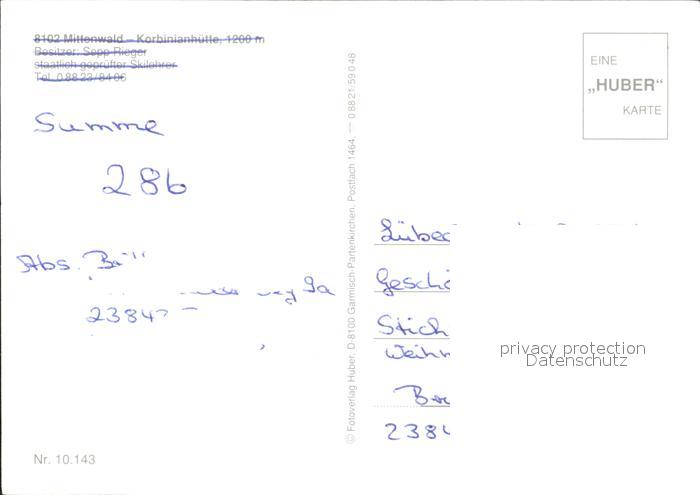 8102 Mittenwald – Korbinianhütte, 1200 m
Besitzer: Sepp Rieger
staatlich geprüfter Skilehrer
Tel. 0 88 23 / 84 06
Summe
286
Abs.
9a
2384
Nr. 10.143
© Fotoverlag Huber, D-8100 Garmisch-Partenkirchen, Postfach 1464, — 0 88 21: 5 90 48
EINE
„HUBER“
KARTE
Lübec
Geschä
Stich
Weihn
2384
privacy protection
Datenschutz